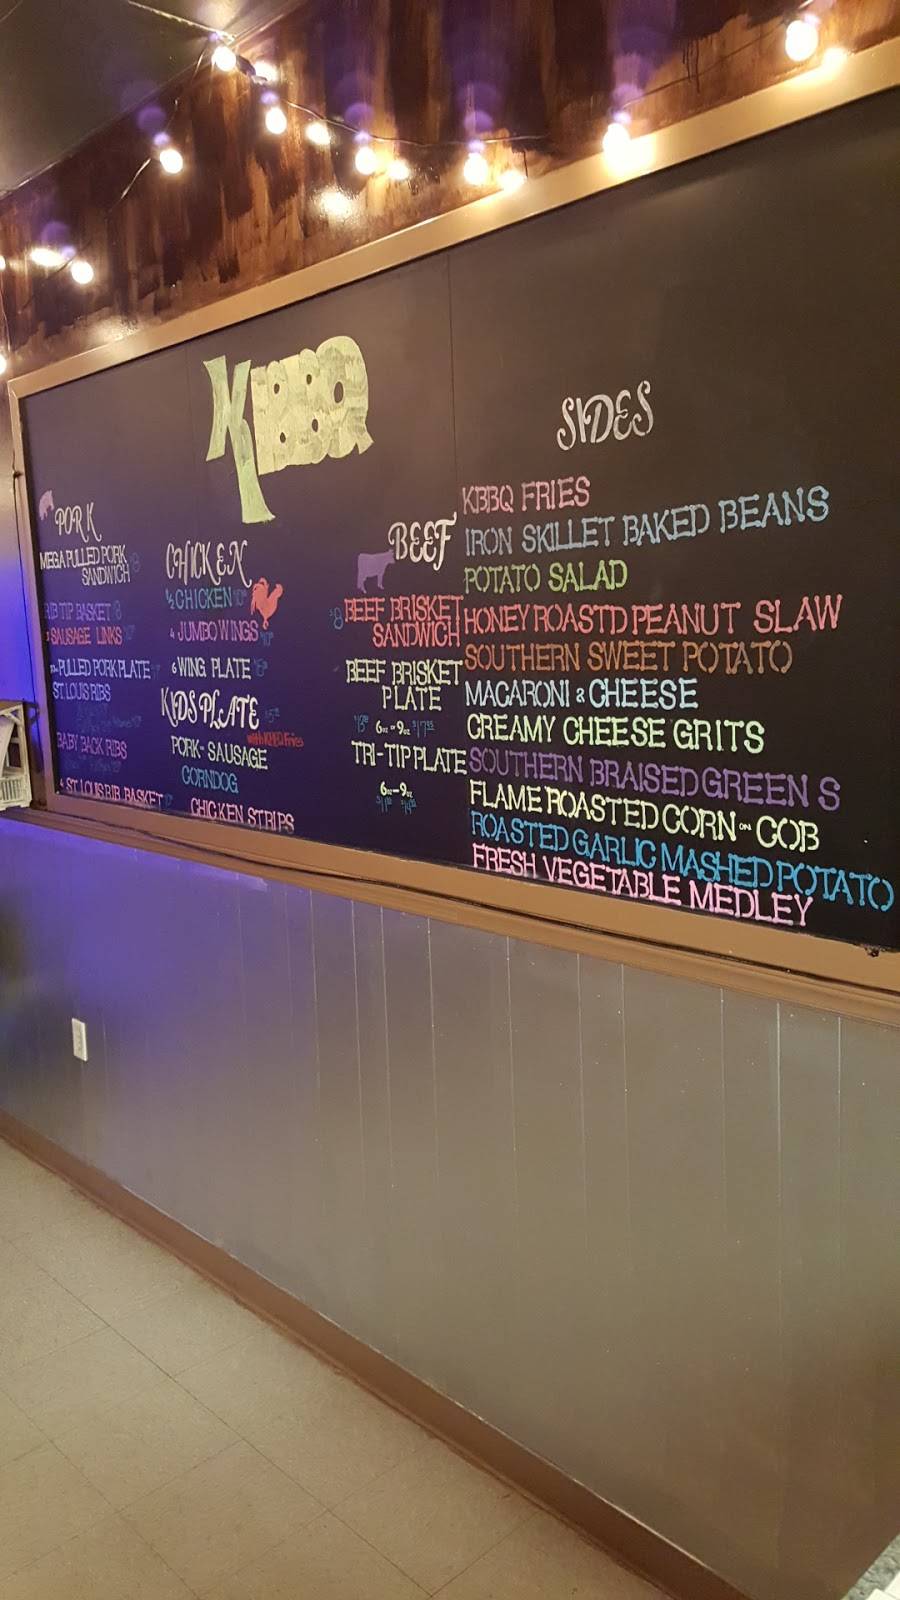 KBBQ
PORK
MEGA PULLED PORK
SANDWICH 8
RIB TIP BASKET 8
SAUSAGE LINKS
PULLED PORK PLATE
ST. LOUIS RIBS
BABY BACK RIBS
ST. LOUIS RIB BASKET
CHICKEN
½ CHICKEN
4 JUMBO WINGS
6 WING PLATE
KIDS PLATE
with KBBQ Fries
PORK- SAUSAGE
CORNDOG
CHICKEN STRIPS
BEEF
$8 BEEF BRISKET
SANDWICH
BEEF BRISKET
PLATE
6oz or 9oz
TRI-TIP PLATE
6oz - 9oz
SIDES
KBBQ FRIES
IRON SKILLET BAKED BEANS
POTATO SALAD
HONEY ROASTD PEANUT SLAW
SOUTHERN SWEET POTATO
MACARONI & CHEESE
CREAMY CHEESE GRITS
SOUTHERN BRAISED GREEN S
FLAME ROASTED CORN ON COB
ROASTED GARLIC MASHED POTATO
FRESH VEGETABLE MEDLEY